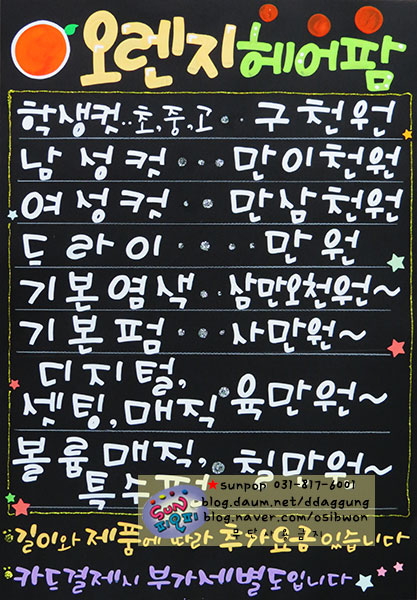 오렌지헤어팜
학생컷..초,중,고 .. 구천원
남성컷 ... 만이천원
여성컷 ... 만삼천원
드라이 ... 만원
기본염색 .. 삼만오천원~
기본펌 ... 사만원~
디지털,
셋팅,매직 육만원~
볼륨매직, 칠만원~
특수펌
★sunpop 031-817-6001
sun
파워피
blog.daum.net/ddaggung
blog.naver.com/osibwon
길이와 제품에 따라 추가요금 있습니다
카드결제시 부가세별도입니다